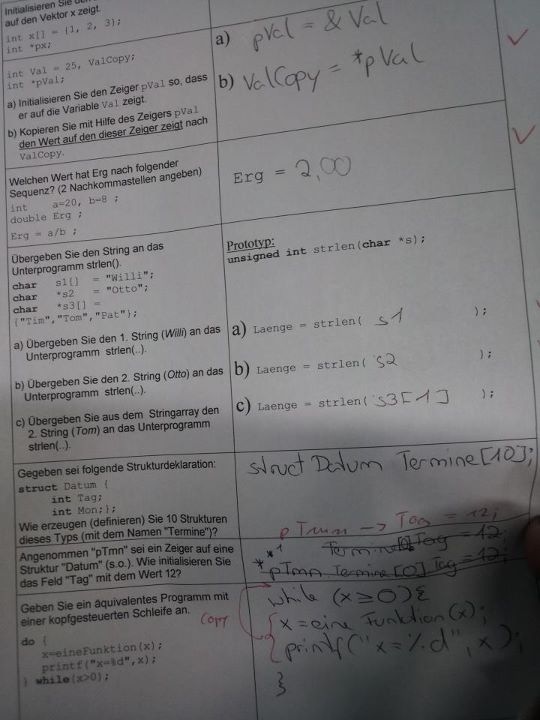 Initialisieren Sie den
auf den Vektor x zeigt.
int x[] = {1, 2, 3};
int *px;
int Val = 25, ValCopy;
int *pVal;
a) Initialisieren Sie den Zeiger pVal so, dass
er auf die Variable Val zeigt.
b) Kopieren Sie mit Hilfe des Zeigers pVal
den Wert auf den dieser Zeiger zeigt nach
ValCopy.
a) pVal = & Val
b) ValCopy = *pVal
Welchen Wert hat Erg nach folgender
Sequenz? (2 Nachkommastellen angeben)
int a=20, b=8 ;
double Erg ;
Erg = a/b ;
Erg = 2,00
Übergeben Sie den String an das
Unterprogramm strlen().
char s1[] = "Willi";
char *s2 = "Otto";
char *s3[] =
{"Tim","Tom","Pat"};
a) Übergeben Sie den 1. String (Willi) an das
Unterprogramm strlen(..).
b) Übergeben Sie den 2. String (Otto) an das
Unterprogramm strlen(..).
c) Übergeben Sie aus dem Stringarray den
2. String (Tom) an das Unterprogramm
strlen(..).
Prototyp:
unsigned int strlen(char *s);
a) Laenge = strlen( s1 );
b) Laenge = strlen( s2 );
c) Laenge = strlen( s3[1] );
Gegeben sei folgende Strukturdeklaration:
struct Datum {
int Tag;
int Mon;};
Wie erzeugen (definieren) Sie 10 Strukturen
dieses Typs (mit dem Namen "Termine")?
struct Datum Termine[10];
Angenommen "pTmn" sei ein Zeiger auf eine
Struktur "Datum" (s.o.). Wie initialisieren Sie
das Feld "Tag" mit dem Wert 12?
pTmn -> Tag = 12;
Tag = 12;
*pTmn Termine[0] Tag = 12;
Geben Sie ein äquivalentes Programm mit
einer kopfgesteuerten Schleife an.
do {
x=eineFunktion(x);
printf("x=%d",x);
} while(x>0);
copy
while (x ≥ 0) {
x = eine Funktion(x);
printf("x=%d", x);
}